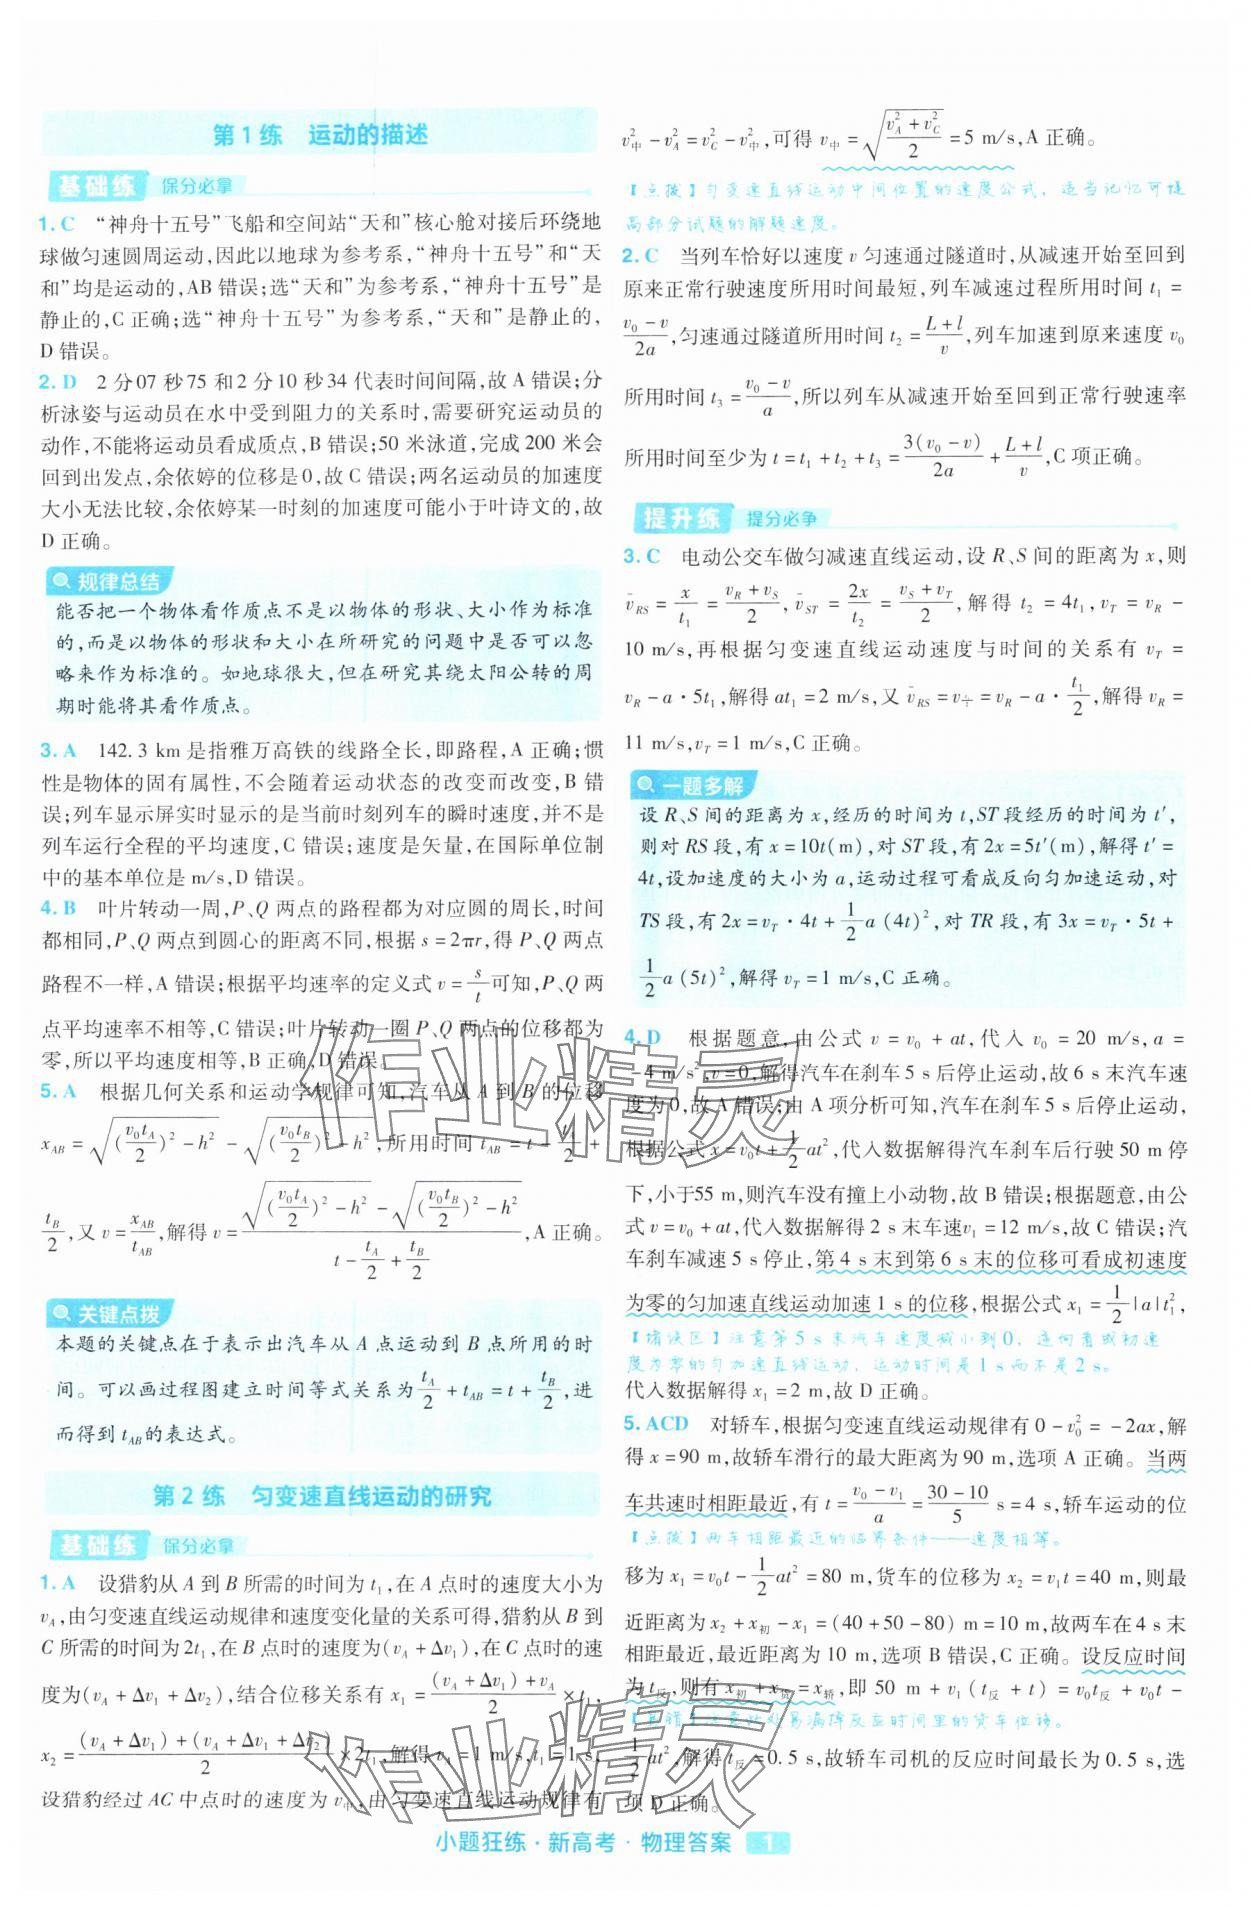 第1练 运动的描述
基础练 保分必拿
1. C “神舟十五号”飞船和空间站“天和”核心舱对接后环绕地
球做匀速圆周运动,因此以地球为参考系,“神舟十五号”和“天
和”均是运动的,AB 错误;选“天和”为参考系,“神舟十五号”是
静止的,C 正确;选“神舟十五号”为参考系,“天和”是静止的,
D 错误。
2. D 2 分 07 秒 75 和 2 分 10 秒 34 代表时间间隔,故 A 错误;分
析泳姿与运动员在水中受到阻力的关系时,需要研究运动员的
动作,不能将运动员看成质点,B 错误;50 米泳道,完成 200 米会
回到出发点,余依婷的位移是 0,故 C 错误;两名运动员的加速度
大小无法比较,余依婷某一时刻的加速度可能小于叶诗文的,故
D 正确。
规律总结
能否把一个物体看作质点不是以物体的形状、大小作为标准
的,而是以物体的形状和大小在所研究的问题中是否可以忽
略来作为标准的。如地球很大,但在研究其绕太阳公转的周
期时能将其看作质点。
3. A 142.3 km 是指雅万高铁的线路全长,即路程,A 正确;惯
性是物体的固有属性,不会随着运动状态的改变而改变,B 错
误;列车显示屏实时显示的是当前时刻列车的瞬时速度,并不是
列车运行全程的平均速度,C 错误;速度是矢量,在国际单位制
中的基本单位是 m/s,D 错误。
4. B 叶片转动一周,P、Q 两点的路程都为对应圆的周长,时间
都相同,P、Q 两点到圆心的距离不同,根据 s=2πr,得 P、Q 两点
路程不一样,A 错误;根据平均速率的定义式 v=\frac{s}{t}可知,P、Q 两
点平均速率不相等,C 错误;叶片转动一圈 P、Q 两点的位移都为
零,所以平均速度相等,B 正确,D 错误。
5. A 根据几何关系和运动学规律可知,汽车从 A 到 B 的位移
x_{AB}=\sqrt{(\frac{v_0t_A}{2})^2-h^2}-\sqrt{(\frac{v_0t_B}{2})^2-h^2},所用时间 t_{AB}=t-\frac{t_A}{2}+
\frac{t_B}{2},又 v=\frac{x_{AB}}{t_{AB}},解得 v=\frac{\sqrt{(\frac{v_0t_A}{2})^2-h^2}-\sqrt{(\frac{v_0t_B}{2})^2-h^2}}{t-\frac{t_A}{2}+\frac{t_B}{2}},A 正确。
关键点拨
本题的关键点在于表示出汽车从 A 点运动到 B 点所用的时
间。可以画过程图建立时间等式关系为\frac{t_A}{2}+t_{AB}=t+\frac{t_B}{2},进
而得到 t_{AB}的表达式。
第2练 匀变速直线运动的研究
基础练 保分必拿
1. A 设猎豹从 A 到 B 所需的时间为 t_1,在 A 点时的速度大小为
v_A,由匀变速直线运动规律和速度变化量的关系可得,猎豹从 B 到
C 所需的时间为 2t_1,在 B 点时的速度为(v_A+Δv_1),在 C 点时的速
度为(v_A+Δv_1+Δv_2),结合位移关系有 x_1=\frac{(v_A+Δv_1)+v_A}{2}×t_1,
x_2=\frac{(v_A+Δv_1)+(v_A+Δv_1+Δv_2)}{2}×2t_1,解得 v_A=1 m/s,t_1=1 s,
设猎豹经过 AC 中点时的速度为 v_中,由匀变速直线运动规律有
v_中^2-v_A^2=v_C^2-v_中^2,可得 v_中=\sqrt{\frac{v_A^2+v_C^2}{2}}=5 m/s,A 正确。
【点拨】匀变速直线运动中间位置的速度公式,适当记忆可提
高部分试题的解题速度。
2. C 当列车恰好以速度 v 匀速通过隧道时,从减速开始至回到
原来正常行驶速度所用时间最短,列车减速过程所用时间 t_1=
\frac{v_0-v}{2a},匀速通过隧道所用时间 t_2=\frac{L+l}{v},列车加速到原来速度 v_0
所用时间 t_3=\frac{v_0-v}{a},所以列车从减速开始至回到正常行驶速率
所用时间至少为 t=t_1+t_2+t_3=\frac{3(v_0-v)}{2a}+\frac{L+l}{v},C 项正确。
提升练 提分必争
3. C 电动公交车做匀减速直线运动,设 R、S 间的距离为 x,则
\bar{v}_{RS}=\frac{x}{t_1}=\frac{v_R+v_S}{2},\bar{v}_{ST}=\frac{2x}{t_2}=\frac{v_S+v_T}{2},解得 t_2=4t_1,v_T=v_R-
10 m/s,再根据匀变速直线运动速度与时间的关系有 v_T=
v_R-a·5t_1,解得 at_1=2 m/s,又 \bar{v}_{RS}=v_{\frac{t_1}{2}}=v_R-a·\frac{t_1}{2},解得 v_R=
11 m/s,v_T=1 m/s,C 正确。
一题多解
设 R、S 间的距离为 x,经历的时间为 t,ST 段经历的时间为 t′,
则对 RS 段,有 x=10t(m),对 ST 段,有 2x=5t′(m),解得 t′=
4t,设加速度的大小为 a,运动过程可看成反向匀加速运动,对
TS 段,有 2x=v_T·4t+\frac{1}{2}a(4t)^2,对 TR 段,有 3x=v_T·5t+
\frac{1}{2}a(5t)^2,解得 v_T=1 m/s,C 正确。
4. D 根据题意,由公式 v=v_0+at,代入 v_0=20 m/s,a=
-4 m/s^2,v=0,解得汽车在刹车 5 s 后停止,故 6 s 末汽车速
度为 0,故 A 错误;由 A 项分析可知,汽车在刹车 5 s 后停止运动,
根据公式 x=v_0t+\frac{1}{2}at^2,代入数据解得汽车刹车后行驶 50 m 停
下,小于55 m,则汽车没有撞上小动物,故 B 错误;根据题意,由公
式 v=v_0+at,代入数据解得 2 s 末车速v_1=12 m/s,故 C 错误;汽
车刹车减速 5 s 停止,第 4 s 末到第 6 s 末的位移可看成初速度
为零的匀加速直线运动加速 1 s 的位移,根据公式 x_1=\frac{1}{2}|a|t_1^2,
【堵误区】注意第 5 s 末汽车速度减小到 0,逆向看成初速
度为零的匀加速直线运动,运动时间是 1 s 而不是 2 s。
代入数据解得 x_1=2 m,故 D 正确。
5. ACD 对轿车,根据匀变速直线运动规律有 0-v_0^2=-2ax,解
得 x=90 m,故轿车滑行的最大距离为 90 m,选项 A 正确。当两
车共速时相距最近,有 t=\frac{v_0-v_1}{a}=\frac{30-10}{5} s=4 s,轿车运动的位
【点拨】两车相距最近的临界条件——速度相等。
移为 x_1=v_0t-\frac{1}{2}at^2=80 m,货车的位移为 x_2=v_1t=40 m,则最
近距离为 x_2+x_初-x_1=(40+50-80) m=10 m,故两车在 4 s 末
相距最近,最近距离为 10 m,选项 B 错误,C 正确。设反应时间
为 t_反,则有 x_初+x_货=x_轿,即 50 m+v_1(t_反+t)=v_0t_反+v_0t-
注意此处易漏掉反应时间里的货车位移。
\frac{1}{2}at^2,解得 t_反=0.5 s,故轿车司机的反应时间最长为 0.5 s,选
项 D 正确。
小题狂练·新高考·物理答案 1
作业精灵
作业精灵